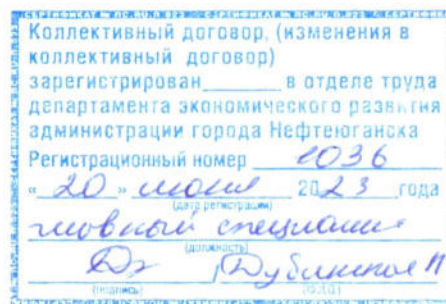 Коллективный договор, (изменения в
коллективный договор)
зарегистрирован______ в отделе труда
департамента экономического развития
администрации города Нефтеюганска
Регистрационный номер 1036
« 20 » июня 2023 года
(дата регистрации)
главный специалист
(должность)
(подпись) (Ф.И.О.)